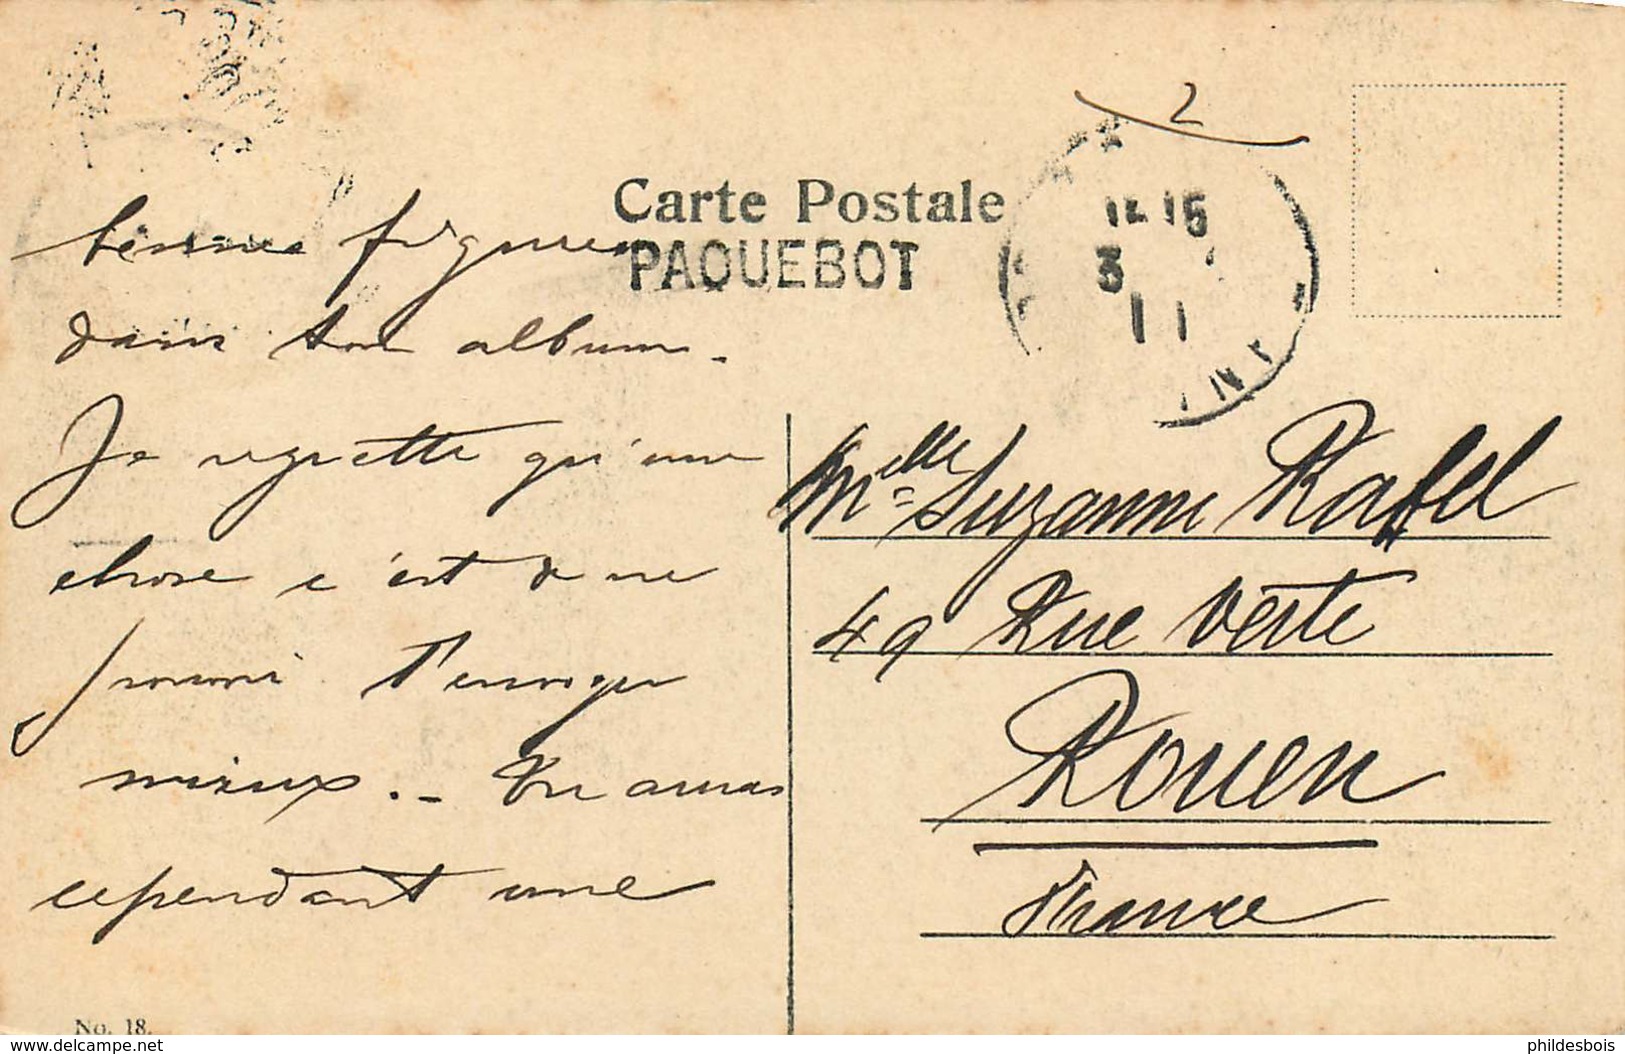 2
Carte Postale
PAQUEBOT
15
3
11
bonne figure
dans ton album.
Je regrette qu'une
chose c'est de ne
t'envoyer
mieux. - Tu auras
cependant une
Melle Suzanne Rafel
49 Rue Verte
Rouen
France
No. 18.
delcampe.net
phildesbois